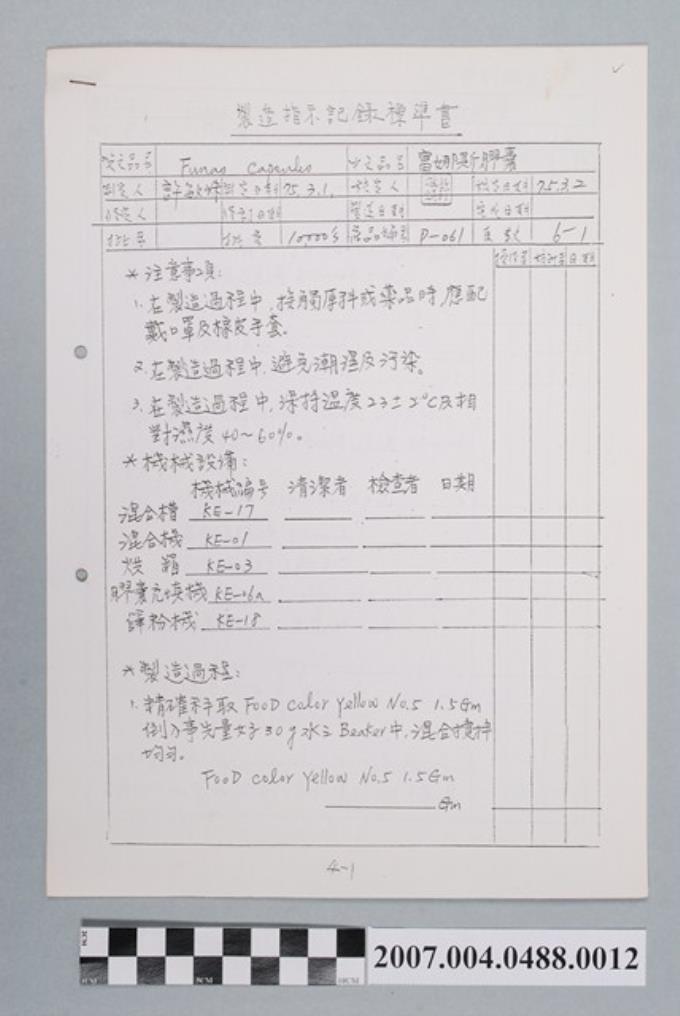 製造指示記錄標準書
英文品名 Funas Capsules 中文品名 富娜斯膠囊
制定人 許 制定日期 75.3.1. 核定人 核定日期 75.3.2
修定人 修訂日期 製造日期 完成日期
批号 批量 10,000's 產品編号 P-061 頁數 6-1
操作者 核對者 日期
*注意事項:
1. 在製造過程中,接觸原料或藥品時,應配
戴口罩及橡皮手套。
2. 在製造過程中,避免潮溼及污染。
3. 在製造過程中,保持溫度23±2°C及相
對濕度40~60%。
*機械設備:
機械編号 清潔者 檢查者 日期
混合槽 KE-17
混合機 KE-01
烘箱 KE-03
膠囊充填機 KE-06a
篩粉機 KE-18
*製造過程:
1. 精確秤取 FooD color Yellow No.5 1.5Gm
倒入事先量好30g水之Beaker中,混合攪拌
均勻。
FooD color Yellow No.5 1.5Gm
Gm
4-1
2007.004.0488.0012